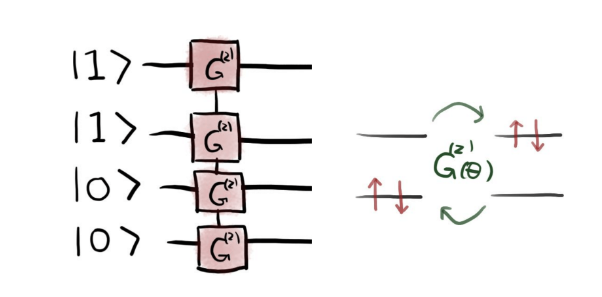 |1> G^(2)
|1> G^(2)
|0> G^(2)
|0> G^(2)
G^(2)(θ)